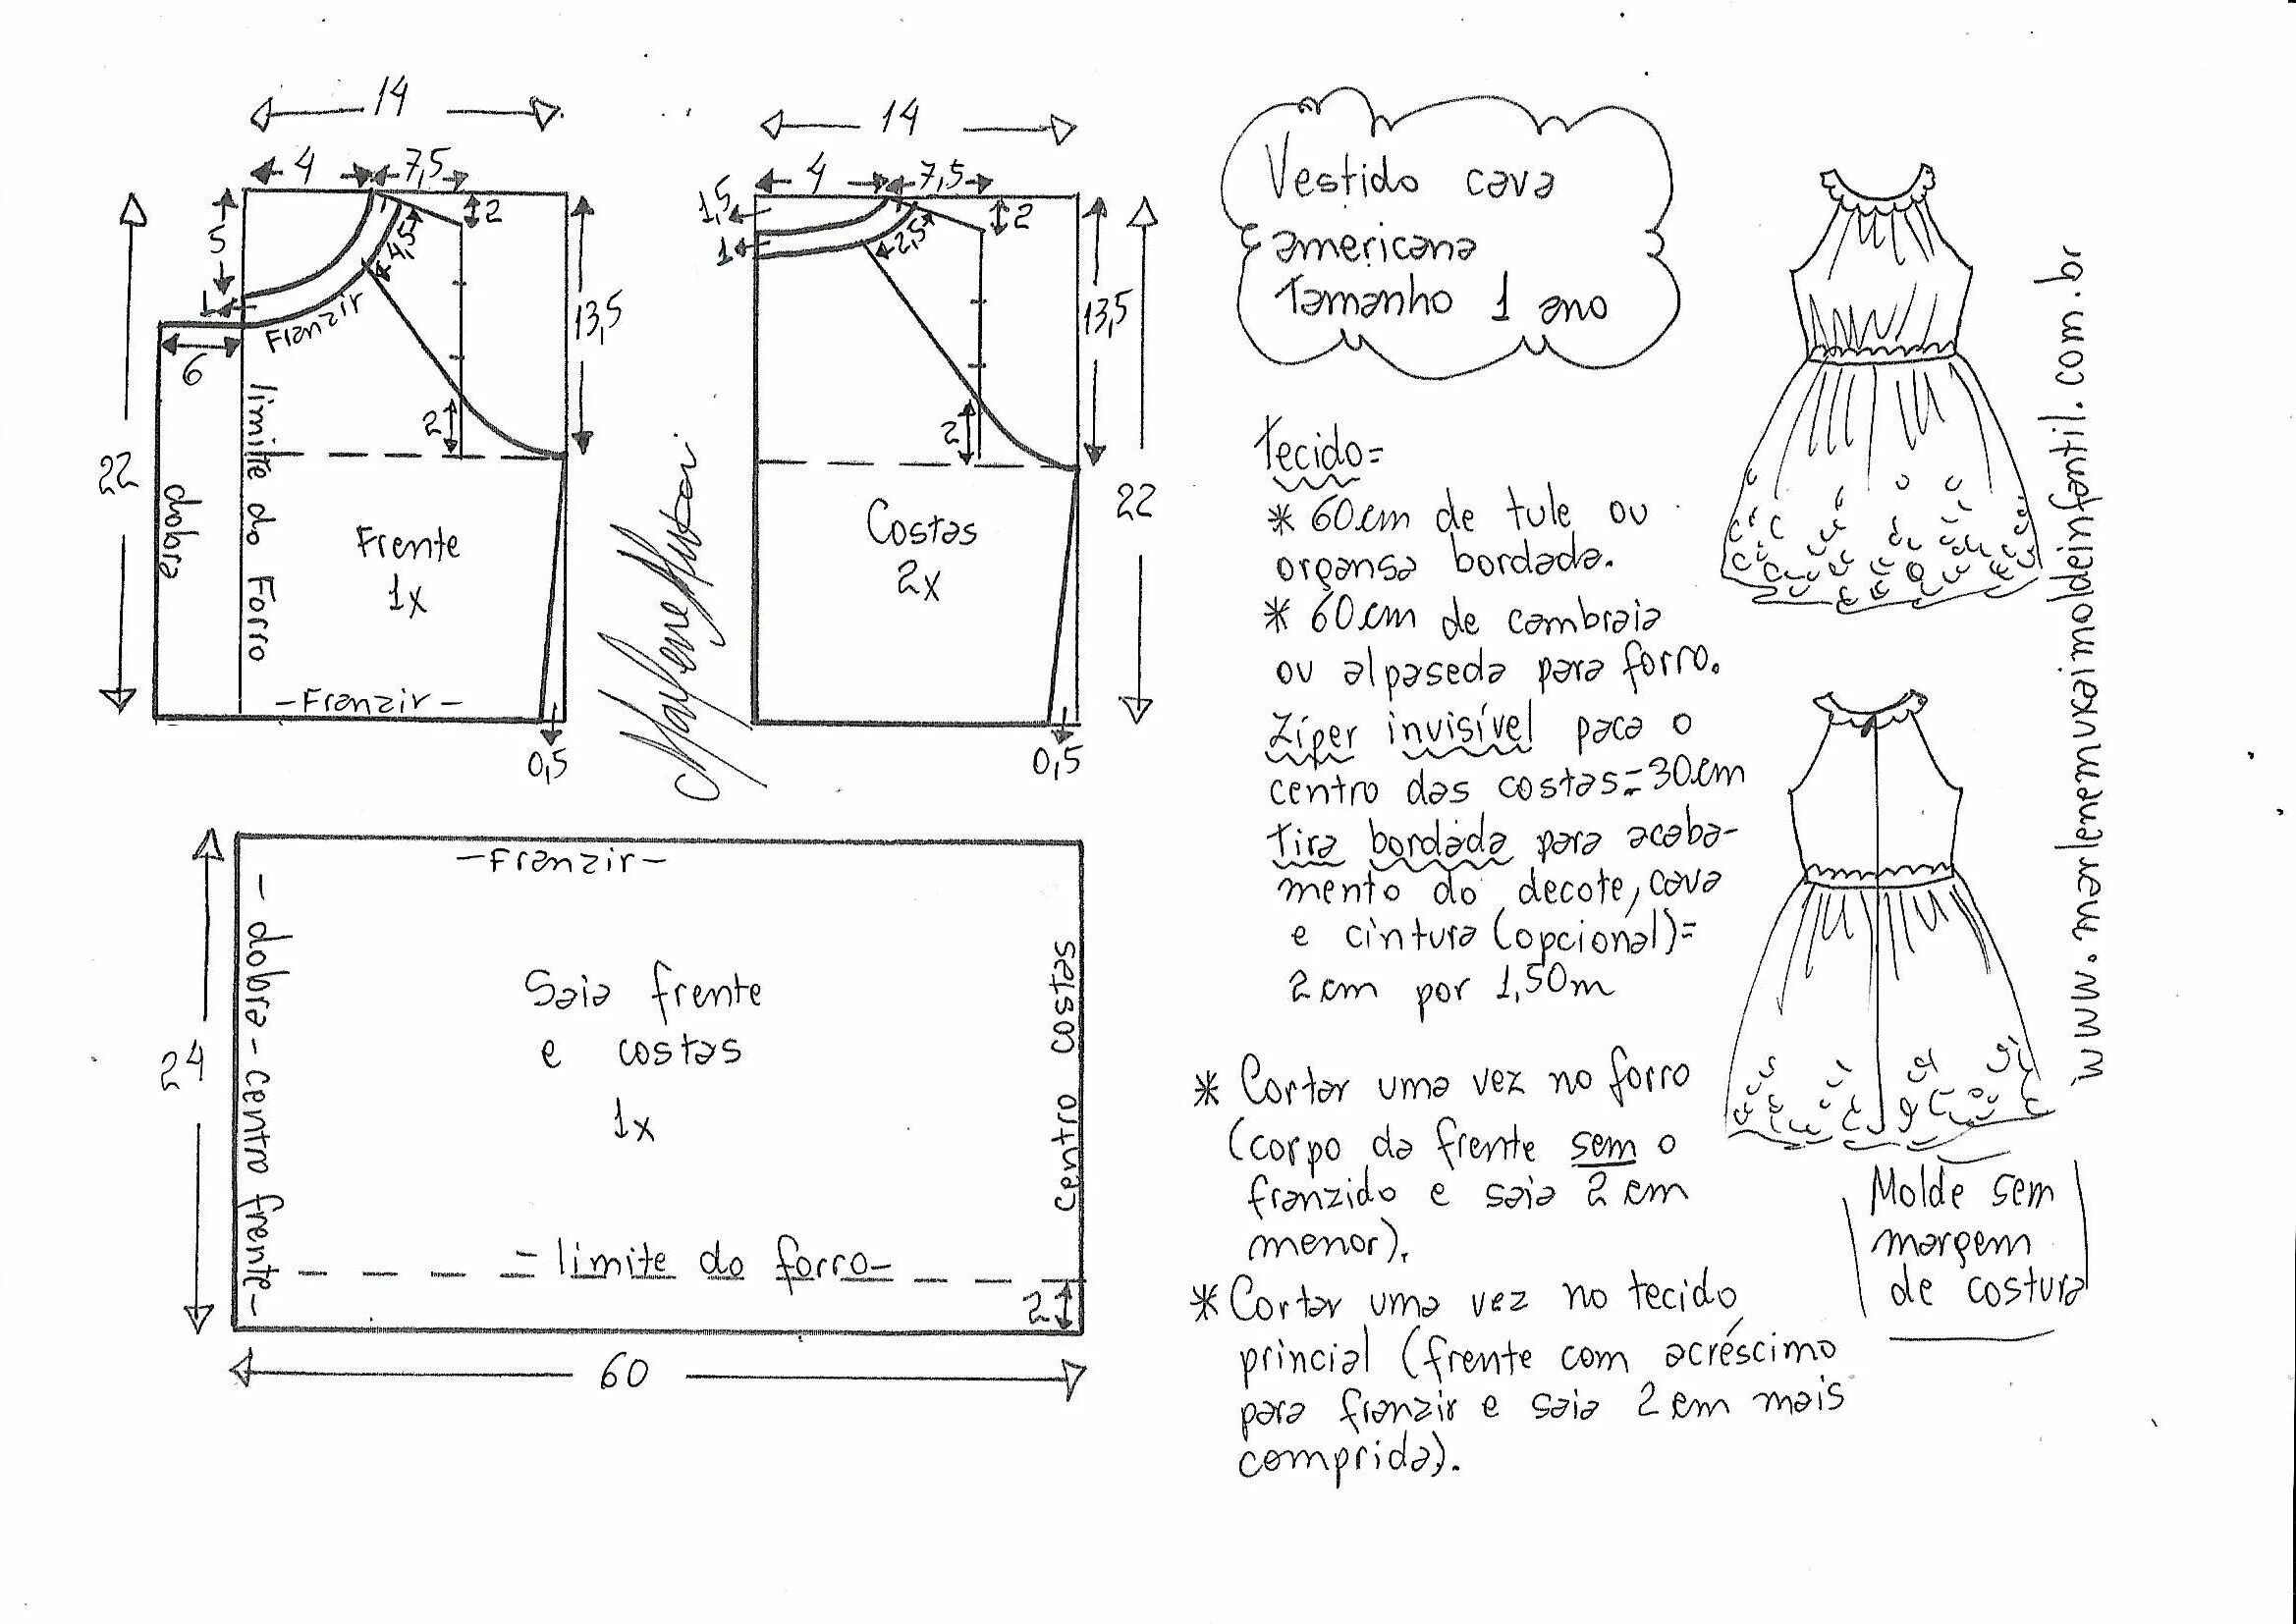 14
4
7,5
5
2
4,5
1
Franzir
6
13,5
22
2
limite do Forro
dobra
Frente
1x
-Franzir-
0,5
14
4
7,5
1,5
1
2
2,5
13,5
22
2
Costas
2x
0,5
24
-Franzir-
- dobra - centro frente -
Saia frente
e costas
1x
centro costas
= limite do forro-
2
60
Vestido cava
americana
Tamanho 1 ano
Tecido=
* 60cm de tule ou
organsa bordada.
* 60cm de cambraia
ou alpaseda para forro.
Zíper invisível para o
centro das costas=30cm
Tira bordada para acaba-
mento do decote, cava
e cintura (opcional)=
2cm por 1,50m
* Cortar uma vez no forro
(corpo da frente sem o
franzido e saia 2cm
menor).
* Cortar uma vez no tecido
princial (frente com acréscimo
para franzir e saia 2cm mais
comprida).
Molde sem
margem
de costura
www.marlenemukaimoldeinfantil.com.br